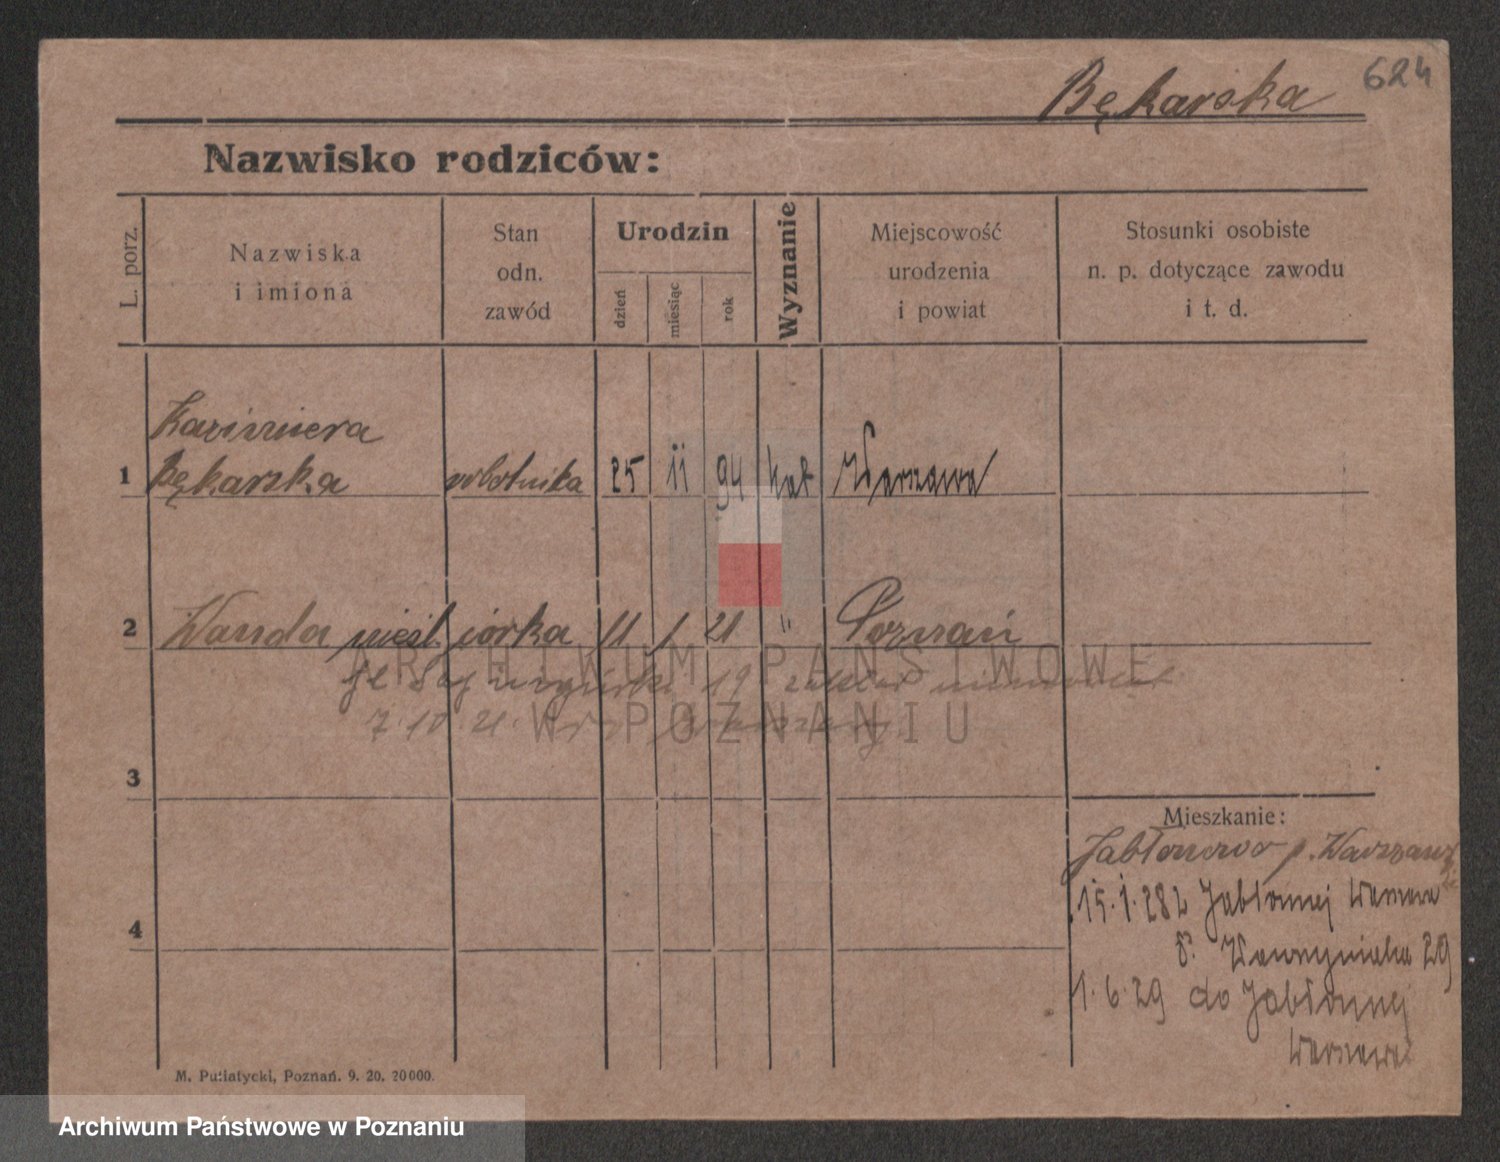 624
Bękarska
Nazwisko rodziców:
L. porz.
Nazwiska
i imiona
Stan
odn.
zawód
Urodzin
dzień
miesiąc
rok
Wyznanie
Miejscowość
urodzenia
i powiat
Stosunki osobiste
n. p. dotyczące zawodu
i t. d.
Kazimiera
1 Bękarska robotnika 25 11 94 kat Warszawa
2 Wanda nieśl. córka 11 1 21 " Poznań
19
7.10.21.
3
Mieszkanie:
Jabłonowo p. Warszawą
15.1.28 z Jabłonnej Warszawa
Wawrzyniaka 29
4
1.6.29 do Jabłonnej
Warszawa
M. Putiatycki, Poznań. 9. 20. 20000.
ARCHIWUM PAŃSTWOWE
W POZNANIU
Archiwum Państwowe w Poznaniu